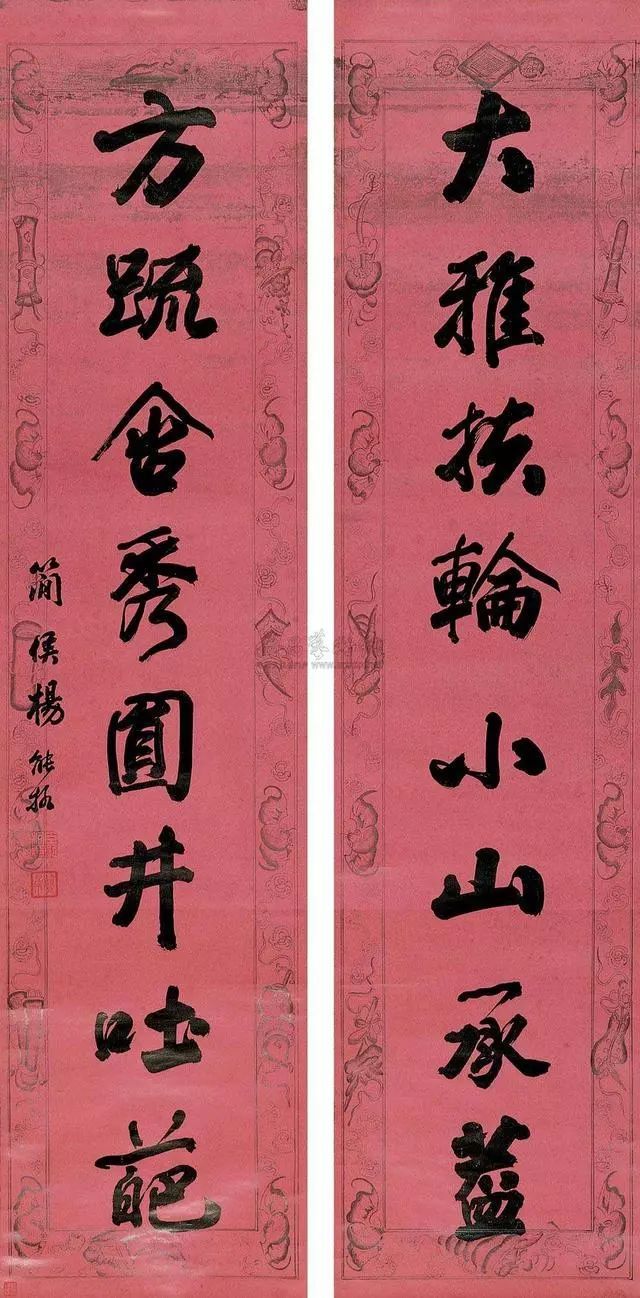 大雅扶輪小山承蓋
方疏含秀圓井吐葩
簡侯楊能格